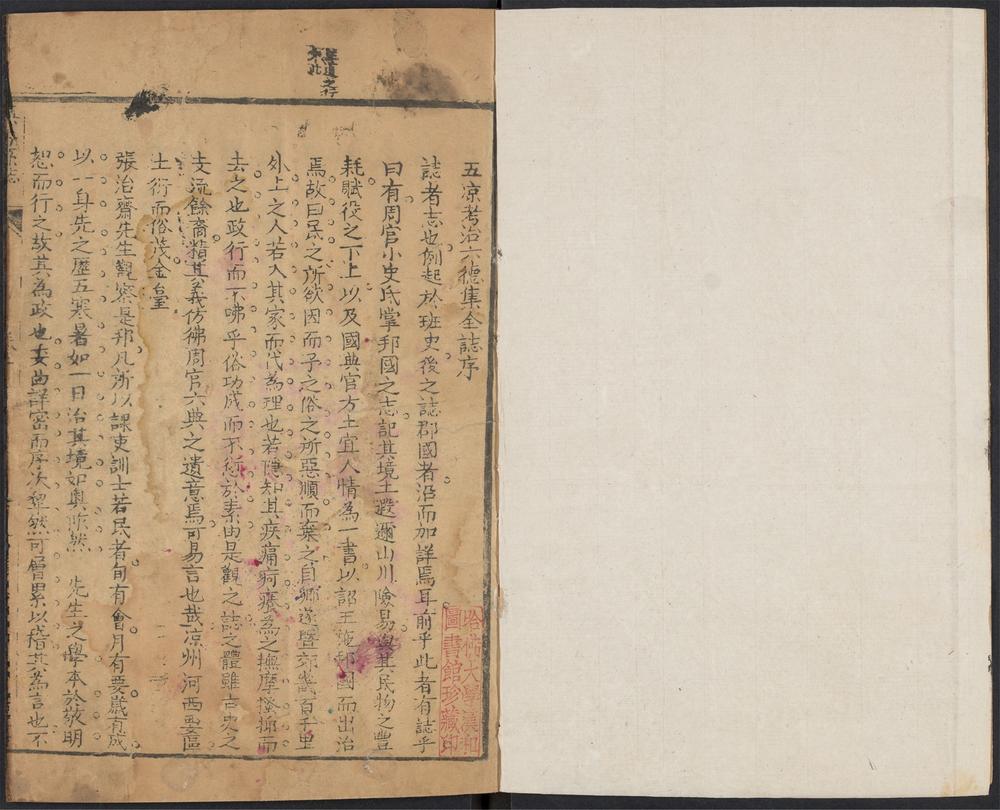 五凉考治六德集全誌序
誌者志也例起於班史後之誌郡國者沿而加詳焉耳前乎此者有誌乎
曰有周官小史氏掌邦國之志記其境土遐邇山川險易與其民物之豐
耗賦役之下上以及國典官方土宜人情為一書以詔王復邦國而出治
焉故曰民之所欲因而予之俗之所惡順而棄之自鄉遂暨郊畿百千里
外上之人若入其家而代為理也若隱知其疾痛疴癢為之撫摩搔抑而
去之也政行而不咈乎俗功成而不愆於素由是觀之誌之體雖古史之
支流餘裔精其義仿彿周官六典之遺意焉可易言也哉凉州河西要區
土衍而俗茂金臺
張治齋先生觀察是邦凡所以課吏訓士若民者旬有會月有要歲有成
以一身先之歷五寒暑如一日治其境如奧阼然 先生之學本於敬明
恕而行之故其為政也委曲詳密而序次犂然可曾累以稽其為言也不
哈佛大學漢和
圖書館珍藏印